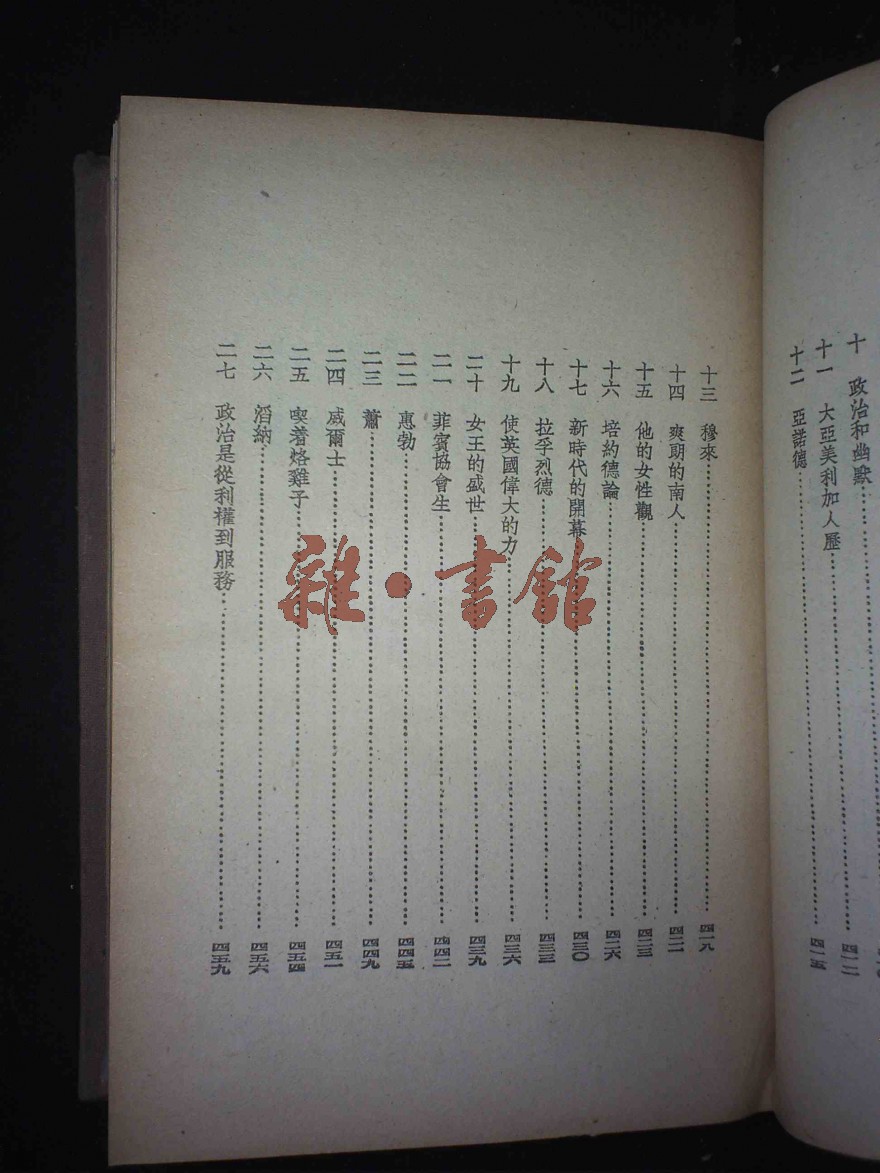 十 政治和幽默
十一 大亞美利加人歷 四一二
十二 亞諾德 四一五
十三 穆來 四一九
十四 爽朗的南人 四二一
十五 他的女性觀 四二三
十六 培約德論 四二六
十七 新時代的開幕 四三〇
十八 拉孚烈德 四三三
十九 使英國偉大的力 四三六
二十 女王的盛世 四三九
二一 菲賓協會生 四四二
二二 惠勃 四四五
二三 蕭 四四九
二四 威爾士 四五一
二五 喫着烙雞子 四五四
二六 滔納 四五六
二七 政治是從利權到服務 四五九
雜·書館